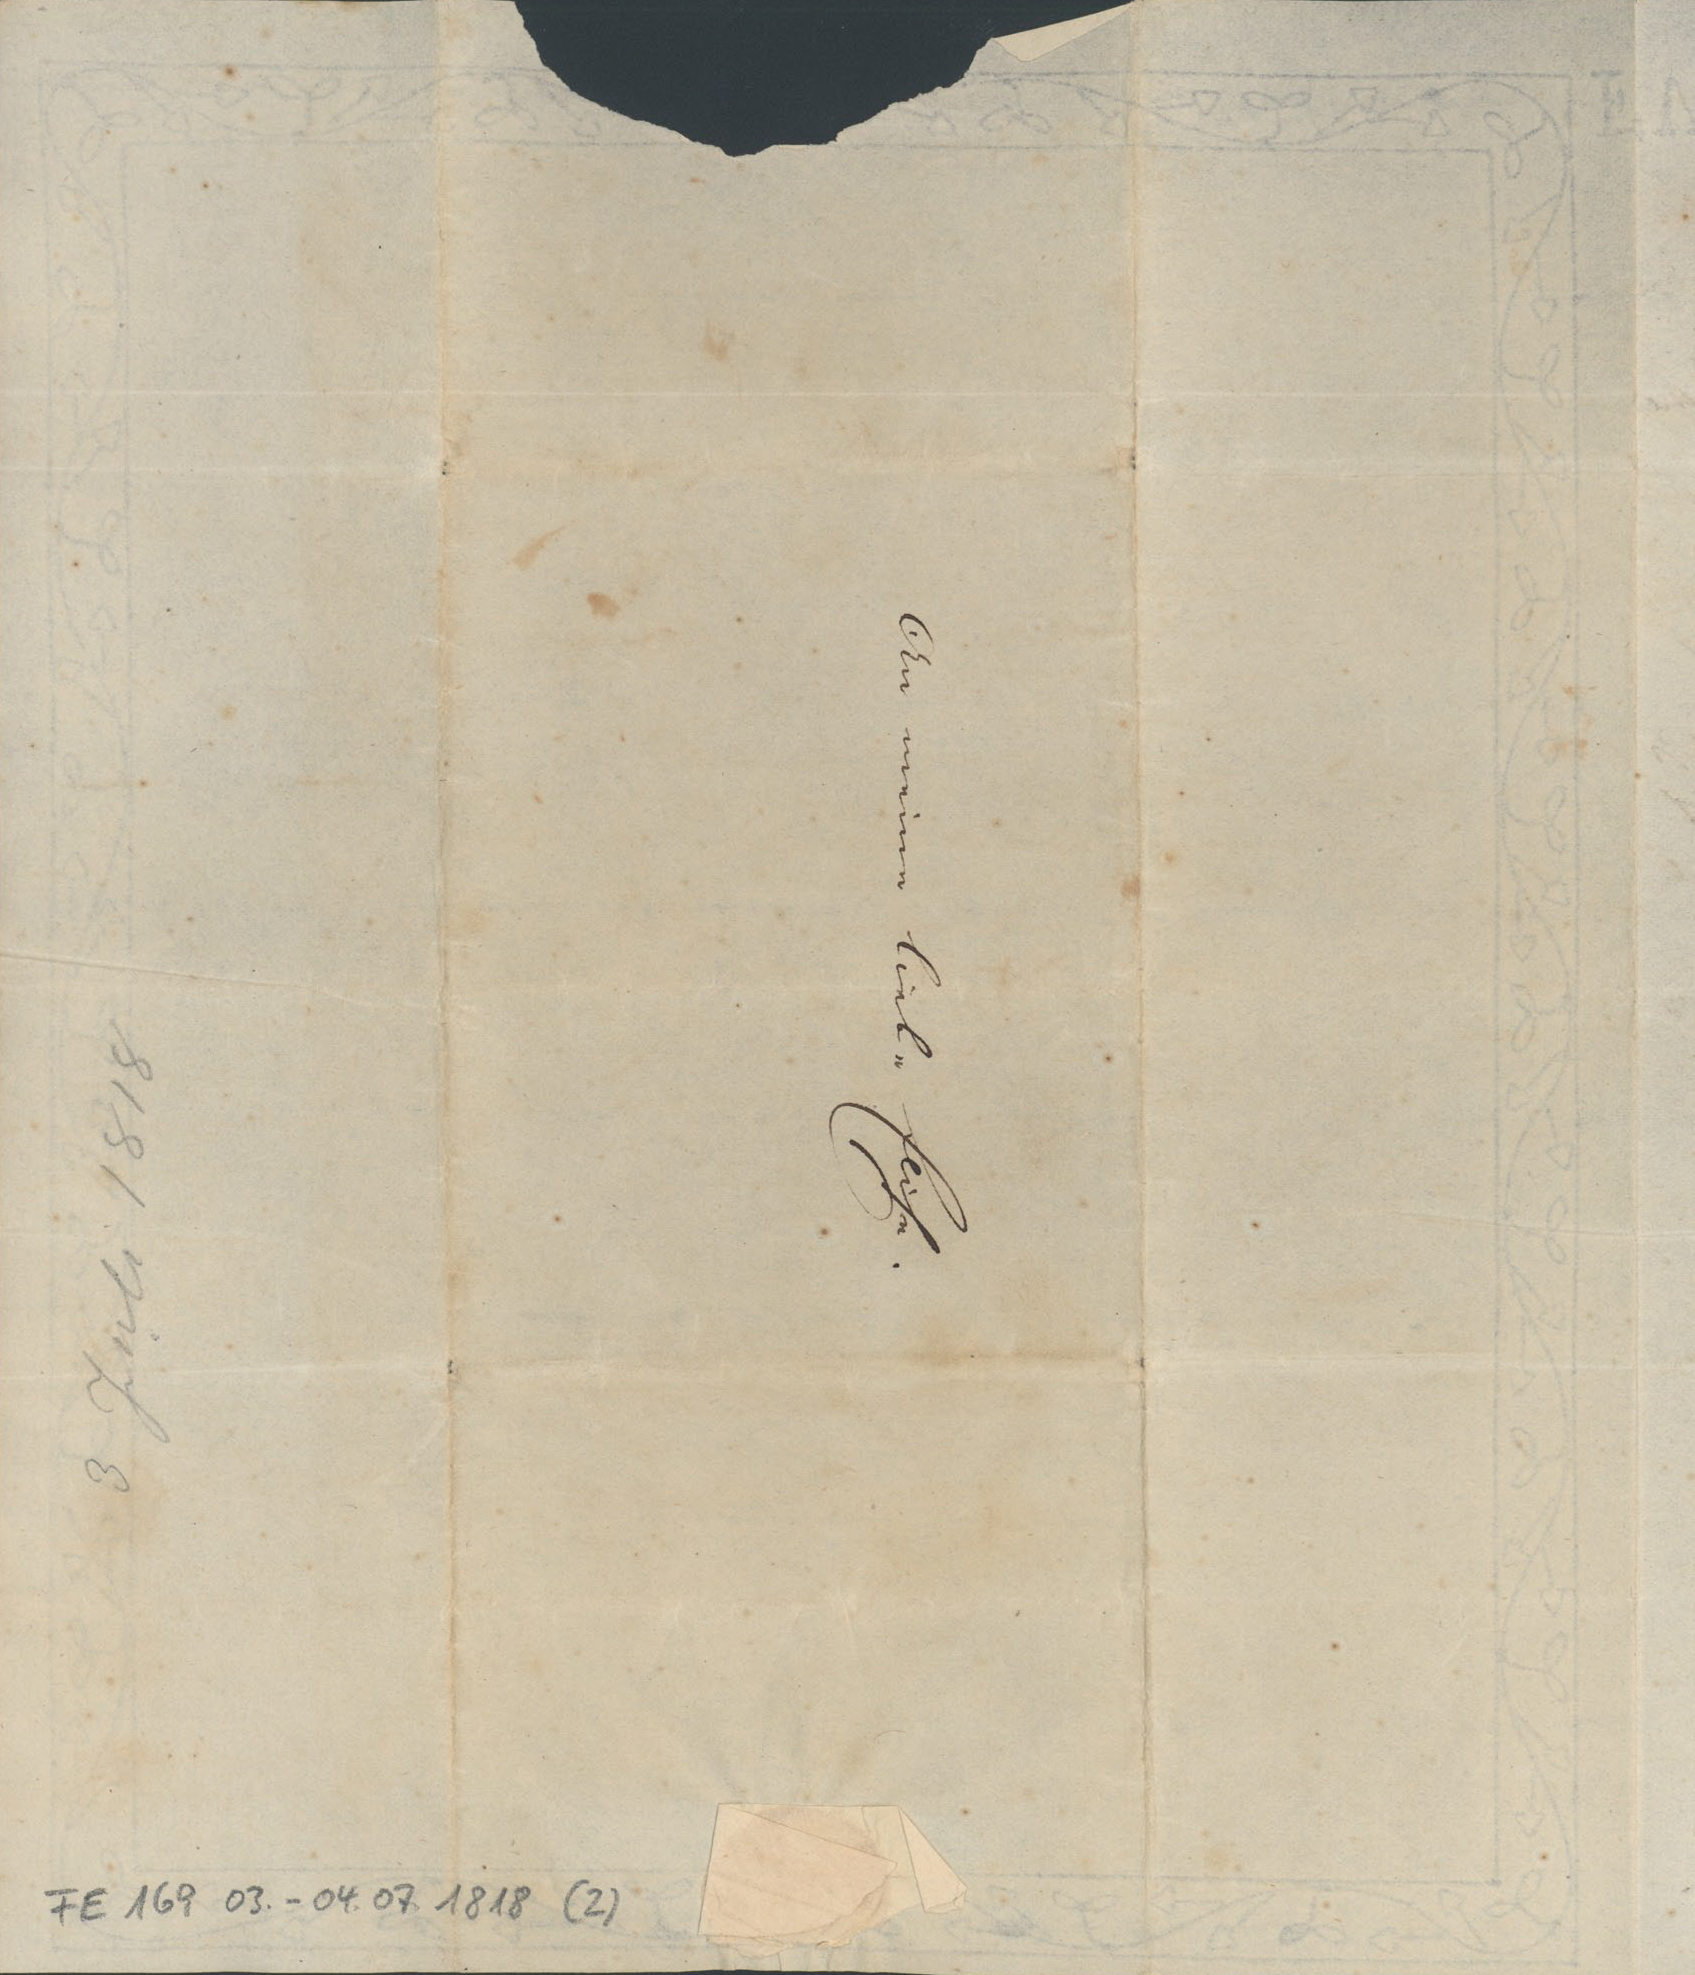 An meinen lieb„
3 Juli 1818
FE 169 03.-04.07.1818 (2)